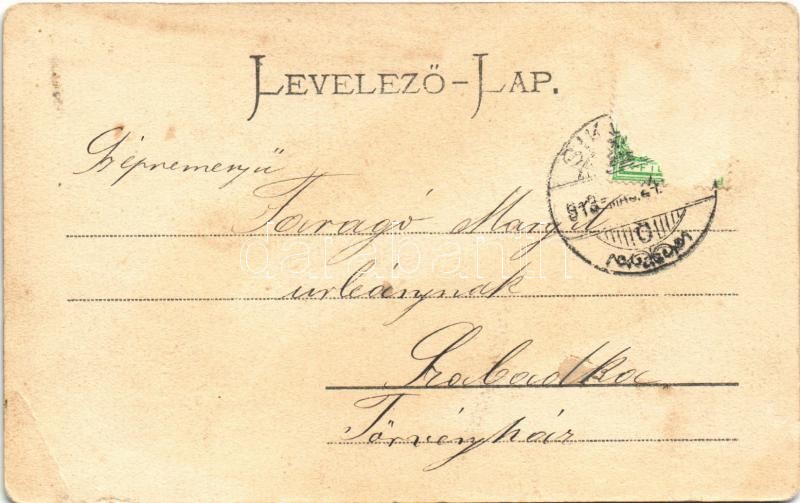 LEVELEZŐ-LAP.
Szépreményű
Faragó Margit
urleánynak
Szabadka
Törvényház
darabanth